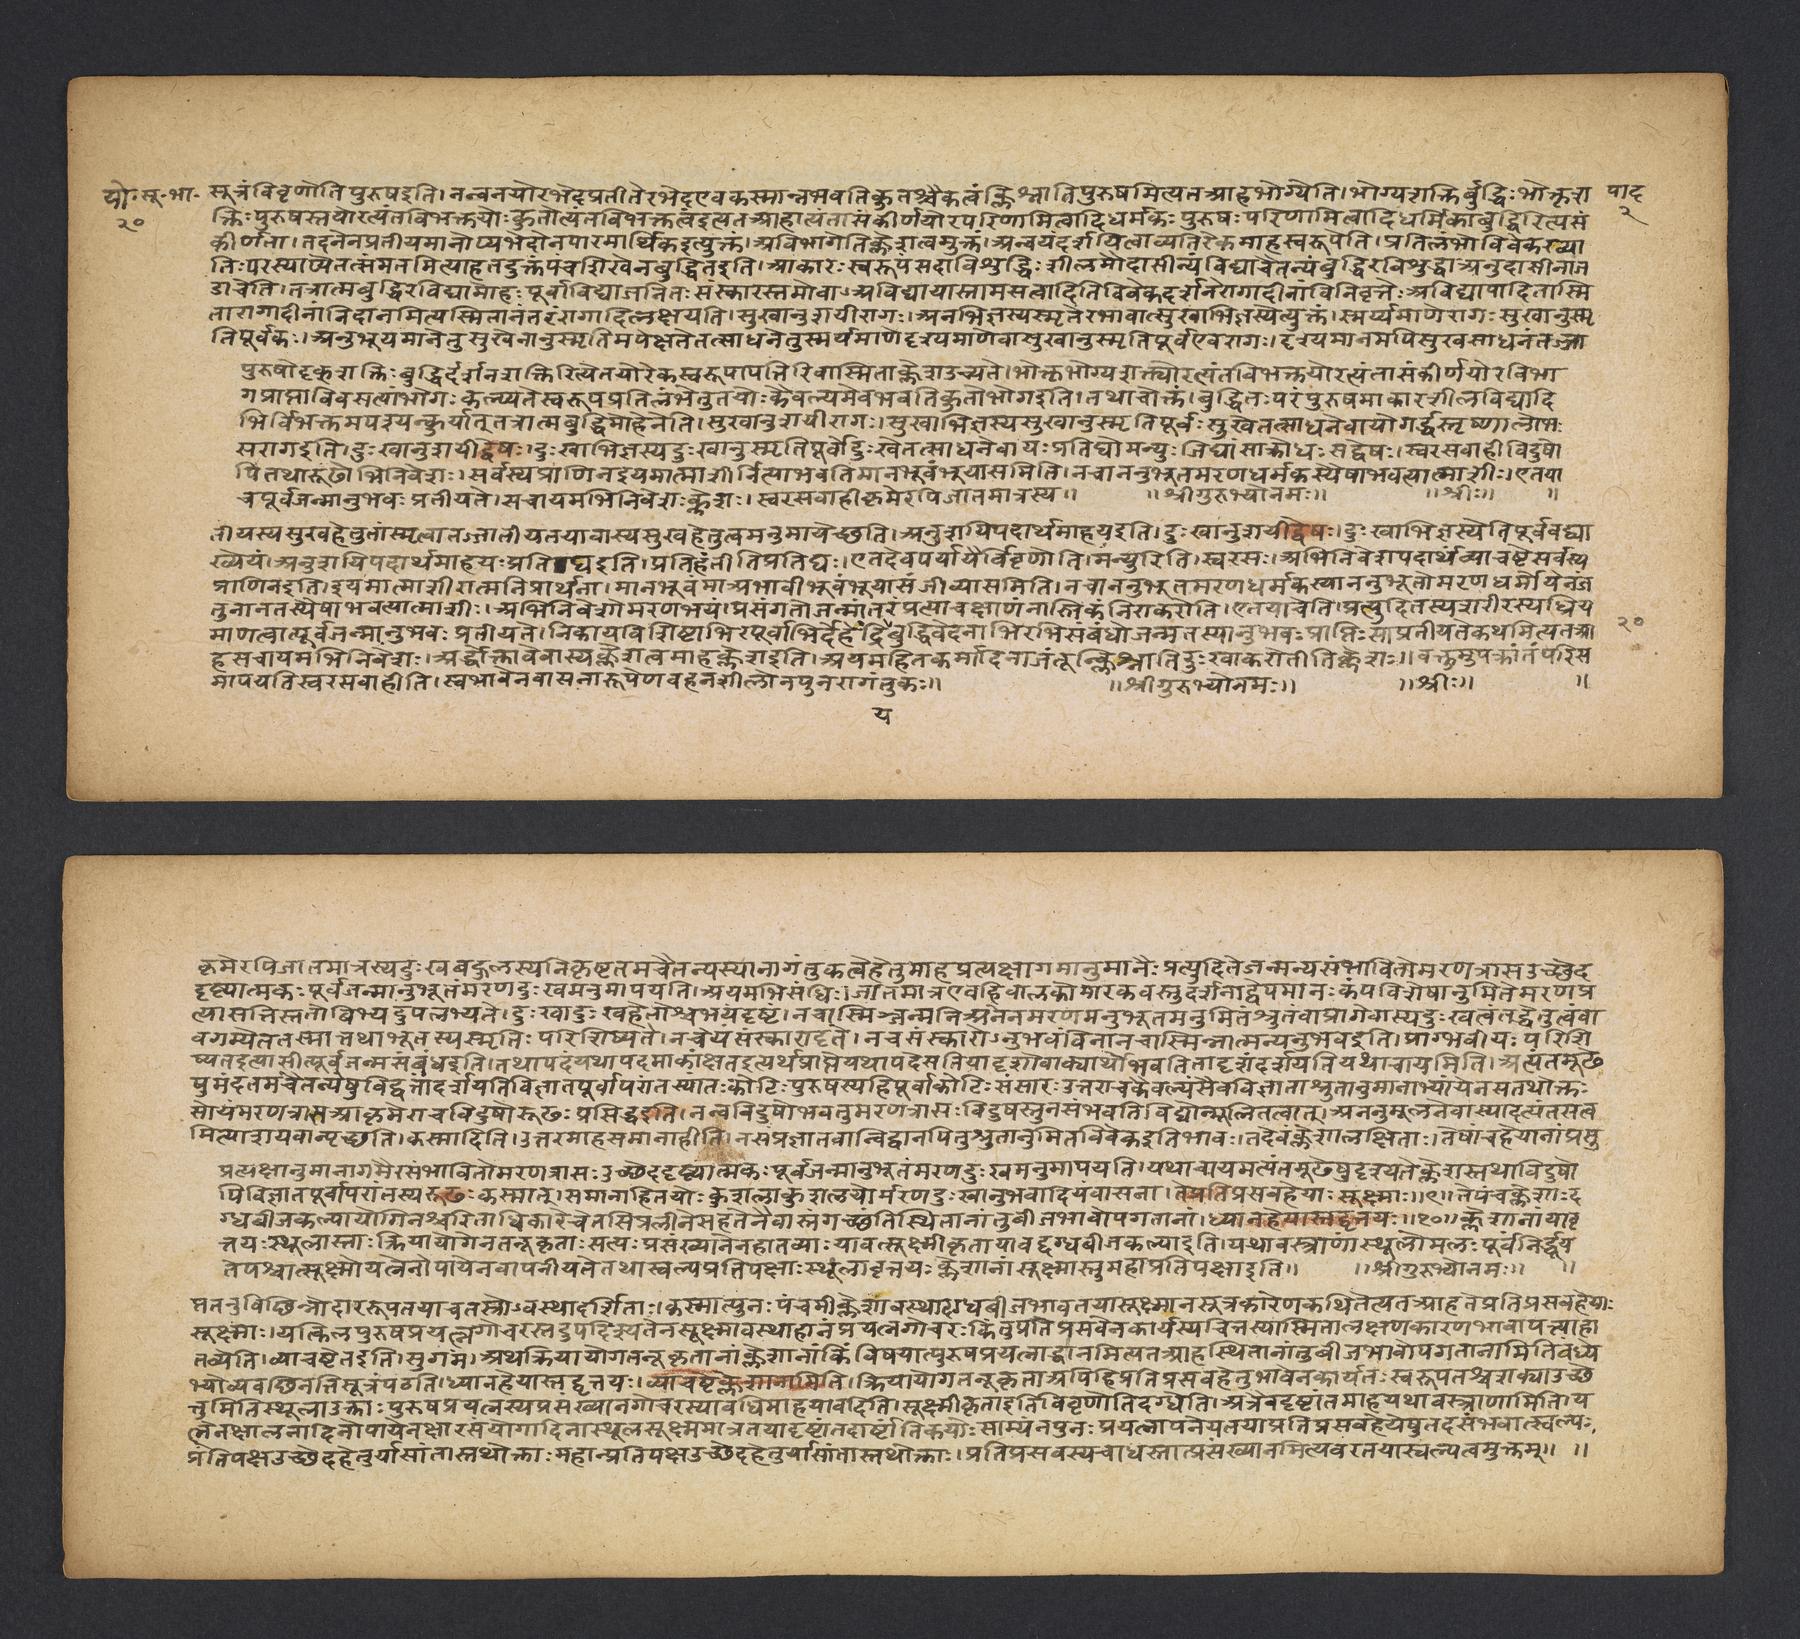 यो॰सू॰भा॰
२०
पाद
२
सूत्रंविवृणोतिपुरुषइति।नन्वनयोरभेदप्रतीतेरभेदएवकस्मान्नभवतिकुतश्चैकत्वंक्लिश्नातिपुरुषमित्यतआहभोग्येति।भोग्यशक्तिर्बुद्धिःभोक्तृश
क्तिःपुरुषस्तयोरत्यंतविभक्तयोःकुतोत्यंतविभक्तत्वंइत्यतआहात्यंतासंकीर्णयोरपरिणामित्वादिधर्मकःपुरुषःपरिणामित्वादिधर्मिकाबुद्धिरित्यसं
कीर्णता।तदनेनप्रतीयमानोप्यभेदोनपारमार्थिकइत्युक्तं।अविभागेतिक्लेशत्वमुक्तं।अन्वयंदर्शयित्वाव्यतिरेकमाहस्वरूपेति।प्रतिलंभोविवेकख्या
तिःपरस्याप्येतत्संमतमित्याहतदुक्तंपंचशिखेनबुद्धितइति।आकारःस्वरूपंसदाविशुद्धिःशीलमौदासीन्यंविद्याचैतन्यंबुद्धिरविशुद्धाअनुदासीनाज
डाचेति।तत्रात्मबुद्धिरविद्यामोहःपूर्वाविद्याजनितःसंस्कारस्तमोवाऽअविद्यायास्तामसत्वादितिविवेकदर्शनेरागादीनांविनिवृत्तेःअविद्यापादितास्मि
तारागादीनांनिदानमित्यस्मितानंतरंरागादिल्लक्षयति।सुखानुशयीरागः।अनभिज्ञस्यस्मृतेरभावात्सुखाभिज्ञस्येत्युक्तं।स्मर्य्यमाणेरागःसुखानुस्मृ
तिपूर्वकः।अनुभूयमानेतुसुखेनानुस्मृतिमपेक्षतेतत्साधनेतुस्मर्यमाणेदृश्यमाणेवासुखानुस्मृतिपूर्वएवरागः।दृश्यमानमपिसुखसाधनंतज्जा
पुरुषोदृक्शक्तिःबुद्धिर्दर्शनशक्तिरित्येतयोरेकस्वरूपापत्तिरिवास्मिताक्लेशउच्यते।भोक्तृभोग्यशक्त्योरत्यंतविभक्तयोरत्यंतासंकीर्णयोरविभा
गप्राप्ताविवसत्यांभोगःकल्प्यतेस्वरूपप्रतिलंभेतुतयोःकैवल्यमेवभवतिकुतोभोगइति।तथाचोक्तं।बुद्धितःपरंपुरुषमाकारशीलविद्यादि
भिर्विभक्तमपश्यन्कुर्यात्तत्रात्मबुद्धिंमोहेनेति।सुखानुशयीरागः।सुखाभिज्ञस्यसुखानुस्मृतिपूर्वःसुखेतत्साधनेवायोगर्द्धस्तृष्णालोभः
सरागइति।दुःखानुशयीद्वेषः।दुःखाभिज्ञस्यदुःखानुस्मृतिपूर्वोदुःखेतत्साधनेवायःप्रतिघोमन्युःजिघांसाक्रोधःसद्वेषः।स्वरसवाहीविदुषो
पितथारूढोभिनिवेशः।सर्वस्यप्राणिनइयमात्माशीर्नित्याभवतिमानभूवंभूयासमिति।नचाननुभूतमरणधर्मकस्यैषाभवत्यात्माशीः।एतया
चपूर्वजन्मानुभवःप्रतीयते।सचायमभिनिवेशःक्लेशः।स्वरसवाहीकृमेरपिजातमात्रस्य॥ ॥श्रीगुरुभ्योनमः॥ ॥श्रीः॥ ॥
तीयस्यसुखहेतुतांस्मृत्वातज्जातीयतयावास्यसुखहेतुत्वमनुमायेच्छति।अनुशयिपदार्थमाहयइति।दुःखानुशयीद्वेषः।दुःखाभिज्ञस्येतिपूर्ववद्व्या
ख्येयं।अनुशयिपदार्थमाहयःप्रतिघइति।प्रतिहंतीतिप्रतिघः।एतदेवपर्यायैर्विवृणोति।मन्युरिति।स्वरसः।अभिनिवेशपदार्थंव्याचष्टेसर्वस्य
प्राणिनइति।इयमात्माशीरात्मनिप्रार्थना।मानभूवंमाअभावीभूवंभूयासंजीव्यासमिति।नचाननुभूतमरणधर्मकस्याननुभूतोमरणधर्मोयेनज
तुनानतस्यैषाभवत्यात्माशीः।अभिनिवेशोमरणभयं।प्रसंगतोजन्मांतरंप्रत्याचक्षाणंनास्तिकंनिराकरोति।एतयाचेति।प्रत्युदितस्यशरीरस्यध्रिय
माणत्वात्पूर्वजन्मानुभवःप्रतीयते।निकायविशिष्टाभिरपूर्वाभिर्देहेंद्रियबुद्धिवेदनाभिरभिसंबंधोजन्मतस्यानुभवःप्राप्तिःसाप्रतीयतेकथमित्यतआ
२०
हसचायमभिनिवेशः।अर्द्धोक्तावेवास्यक्लेशत्वमाहक्लेशइति।अयमहितकर्मादिनाजंतून्क्लिश्नातिदुःखाकरोतीतिक्लेशः॥वक्तुमुपक्रांतंपरिस
मापयतिस्वरसवाहीति।स्वभावेनवासनारूपेणवहनशीलोनपुनरागंतुकः॥ ॥श्रीगुरुभ्योनमः॥ ॥श्रीः॥ ॥
य
कृमेरपिजातमात्रस्यदुःखबहुलस्यनिकृष्टतमचैतन्यस्यानागंतुकत्वेहेतुमाहप्रत्यक्षागमानुमानैःप्रत्युदितेजन्मन्यसंभावितोमरणत्रासउच्छेद
दृष्ट्यात्मकःपूर्वजन्मानुभूतंमरणदुःखमनुमापयति।अयमभिसंधिः।जातमात्रएवहिबालकोमारकवस्तुदर्शनाद्वेपमानःकंपविशेषानुमितेमरणप्र
त्यासत्तिस्ततोबिभ्यदुपलभ्यते।दुःखाद्दुःखहेतोश्चभयंदृष्टं।नचास्मिञ्जन्मनिअनेनमरणमनुभूतमनुमितंश्रुतंवाप्रागेवास्यदुःखत्वंतद्धेतुत्वंवा
वगम्येततस्मात्तथाभूतस्यस्मृतिःपरिशिष्यते।नचेयंसंस्कारादृते।नचसंस्कारोऽनुभवंविनानचास्मिन्जात्मन्यनुभवइति।प्राग्भवीयःपरिशि
ष्यतइत्यासीत्पूर्वजन्मसंबंधइति।तथापदंयथापदमाकांक्षतइत्यर्थप्राप्तेयथापदेसतियादृशोवाक्यार्थोभवतितादृशंदर्शयतियथाचायमिति।अत्यंतमूढे
षुमंदतमचैतन्येषुविद्वत्तांदर्शयतिविज्ञातपूर्वापरांतस्यांतःकोटिःपुरुषस्यहिपूर्वाकोटिःसंसारःउत्तराचकैवल्यंसैवविज्ञाताश्रुतानुमानाभ्यांयेनसतथोक्तः
सोयंमरणत्रासआकृमेराचविदुषोरूढःप्रसिद्धइति।नन्वविदुषोभवतुमरणत्रासःविदुषस्तुनसंभवति।विद्योन्मूलितत्वात्।अननुमूलनेवास्यादत्यंतसत्त्व
मित्याशयवान्पृच्छति।कस्मादिति।उत्तरमाहसमानाहीति।नसंप्रज्ञातवान्विद्वानपितुश्रुतानुमितविवेकइतिभावः।तदेवंक्लेशालक्षिताः।तेषांचहेयानांप्रसु
प्रत्यक्षानुमानागमैरसंभावितोमरणत्रासःउच्छेददृष्ट्यात्मकःपूर्वजन्मानुभूतंमरणदुःखमनुमापयति।यथाचायमत्यंतमूढेषुदृश्यतेक्लेशस्तथाविदुषो
पिविज्ञातपूर्वापरांतस्यरूढःकस्मात्।समानाहितयोःकुशलाकुशलयोर्मरणदुःखानुभवादियंवासना।तेप्रतिप्रसवहेयाःसूक्ष्माः॥९॥तेपंचक्लेशाःद
ग्धबीजकल्पायोगिनश्चरिताधिकारेचेतसिप्रलीनेसहतेनैवास्तंगच्छंतिस्थितानांतुबीजभावोपगतानां।ध्यानहेयास्तद्वृत्तयः॥१०॥क्लेशानांयावृ
त्तयःस्थूलास्ताःक्रियायोगेनतनूकृताःसत्यःप्रसंख्यानेनहातव्याःयावत्सूक्ष्मीकृतायावद्दग्धबीजकल्पाइति।यथावस्त्राणांस्थूलोमलःपूर्वंनिर्द्धूय
तेपश्चात्सूक्ष्मोयत्नेनोपायेनवापनीयतेतथास्वल्पप्रतिपक्षाःस्थूलावृत्तयःक्लेशानांसूक्ष्मास्तुमहाप्रतिपक्षाइति॥ ॥श्रीगुरुभ्योनमः॥ ॥
प्ततनुविच्छिन्नोदाररूपतयाचतस्रोऽवस्थादर्शिताः।कस्मात्पुनःपंचमीक्लेशावस्थादग्धबीजभावतयासूक्ष्मानसूत्रकारेणकथितेत्यतआहतेप्रतिप्रसवहेयाः
सूक्ष्माः।यत्किलपुरुषप्रयत्नगोचरस्तदुपदिश्यतेनसूक्ष्मावस्थाहानंप्रयत्नगोचरःकिंतुप्रतिप्रसवेनकार्यस्यचित्तस्यास्मितालक्षणकारणभावापत्त्याहा
तव्येति।व्याचष्टेतइति।सुगमं।अथक्रियायोगतनूकृतानांक्लेशानांकिंविषयात्पुरुषप्रयत्नाद्धानमित्यतआहस्थितानांतुबीजभावोपगतानामितिवंध्ये
भ्योव्यवच्छिनत्तिसूत्रंपठति।ध्यानहेयास्तद्वृत्तयः।व्याचष्टेक्लेशानामिति।क्रियायोगतनूकृताअपिहिप्रतिप्रसवहेतुभावेनकार्यतःस्वरूपतश्चशक्याउच्छे
त्तुमितिस्थूलाउक्ताःपुरुषप्रयत्नस्यप्रसंख्यानगोचरस्यावधिमाहयावदिति।सूक्ष्मीकृताइतिविवृणोतिदग्धेति।अत्रैवदृष्टांतमाहयथावस्त्राणामिति।य
त्नेनक्षालनादिनोपायेनक्षारसंयोगादिनास्थूलसूक्ष्ममात्रतयादृष्टांतदार्ष्टांतिकयोःसाम्यंनपुनःप्रयत्नापनेयतयाप्रतिप्रसवहेयेषुतदसंभवात्स्वल्पः
प्रतिपक्षउच्छेदहेतुर्यासांतास्तथोक्ताःमहान्प्रतिपक्षउच्छेदहेतुर्यासांतास्तथोक्ताः।प्रतिप्रसवस्यचाधस्तात्प्रसंख्यानमित्यवरतयास्वल्पत्वमुक्तम्॥ ॥